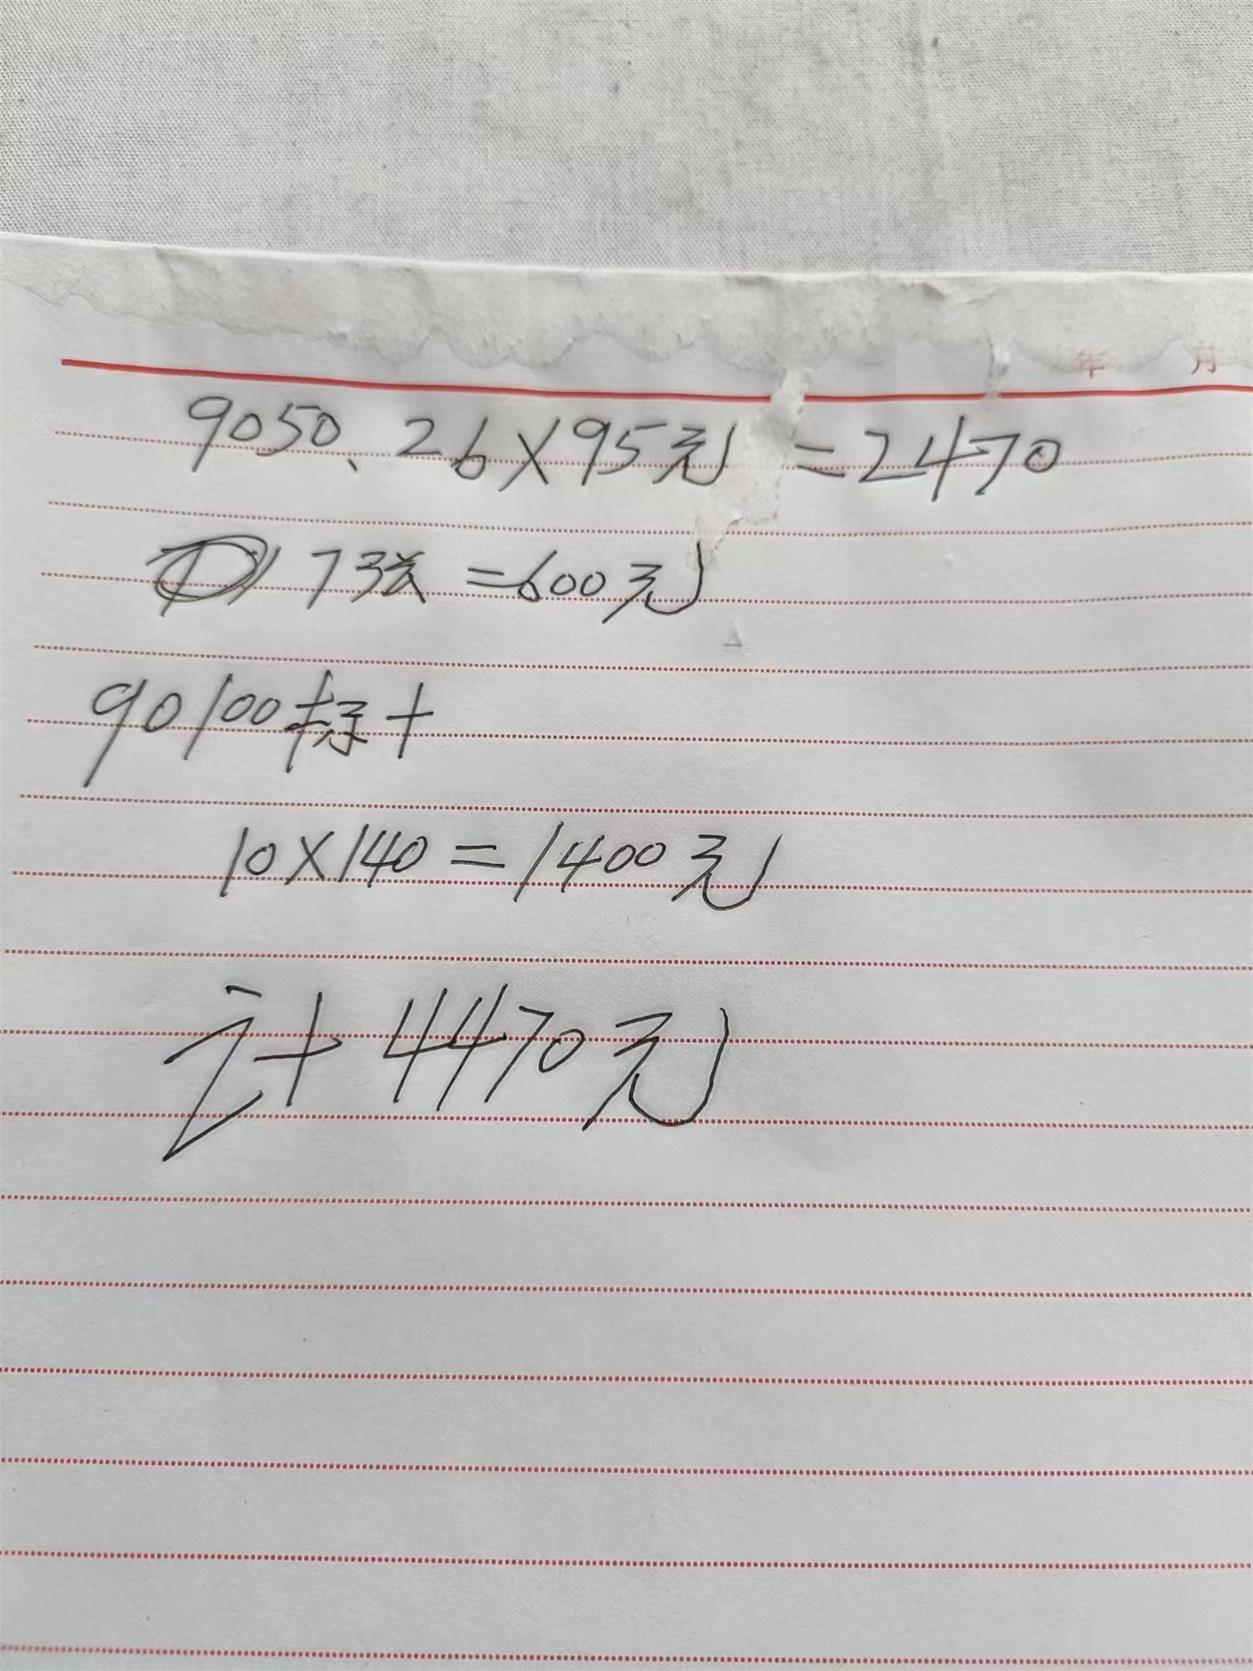 年 月
9050、26×95元=2470
73张=600元
90100标十
10×140=1400元
计4470元